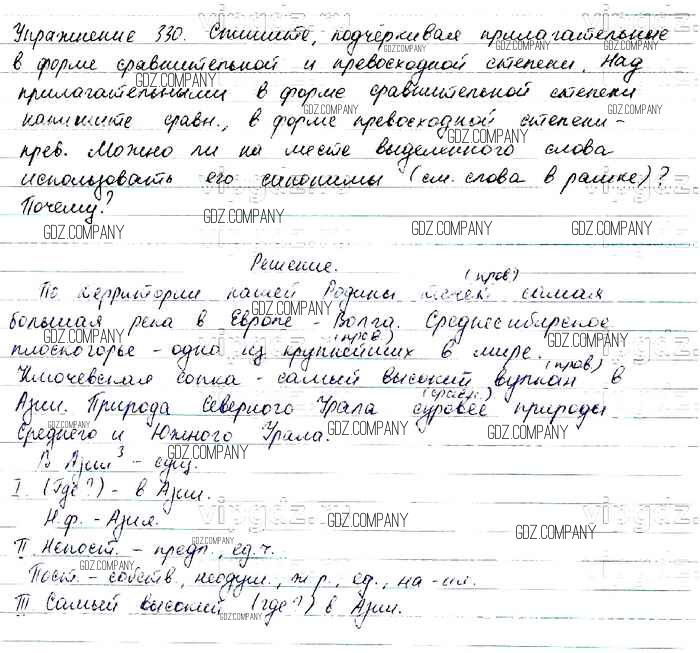 Упражнение 330. Спишите, подчёркивая прилагательные
в форме сравнительной и превосходной степени. Над
прилагательными в форме сравнительной степени
напишите сравн., в форме превосходной степени -
прев. Можно ли на месте выделенного слова
использовать его синонимы (см. слова в рамке)?
Почему?
Решение.
(прев)
По территории нашей Родины течёт самая
большая река в Европе - Волга. Среднесибирское
(прев)
плоскогорье - одна из крупнейших в мире.
(прев)
Ключевская сопка - самый высокий вулкан в
(сравн.)
Азии. Природа Северного Урала суровее природы
Среднего и Южного Урала.
В Азии³ - сущ.
I. (Где?) - в Азии.
Н.ф. - Азия.
II Непост. - предл., ед.ч.
Пост. - собств., неодуш., ж.р., ед., на -ия.
III Самый высокий (где?) в Азии.
GDZ.COMPANY